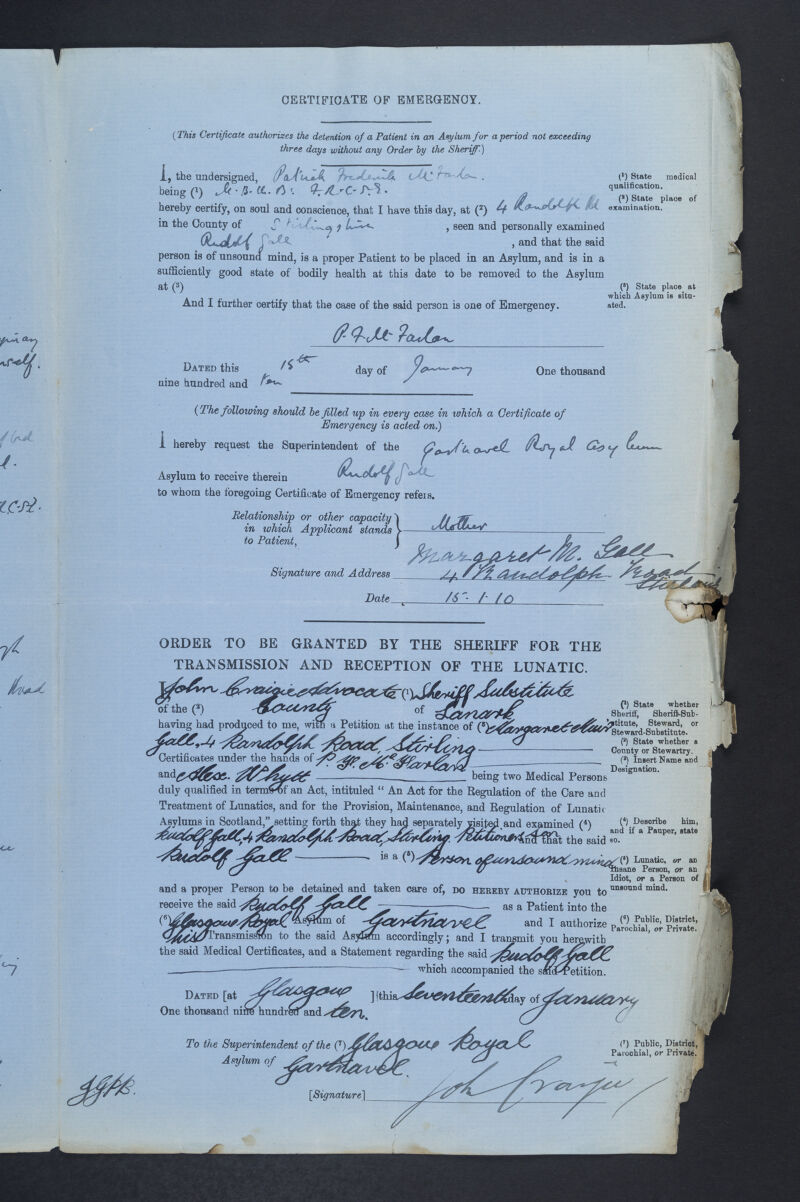 CERTIFICATE OF EMERGENCY.
(This Certificate authorizes the detention of a Patient in an Asylum for a period not exceeding
three days without any Order by the Sheriff.)
I, the undersigned, Patrick Frederick McFarlan.
being (¹) M.B.Ch.B: F.R.C.S.E.
hereby certify, on soul and conscience, that I have this day, at (²) 4 Randolph Rd
in the County of Stirlingshire , seen and personally examined
Rudolf Gall , and that the said
person is of unsound mind, is a proper Patient to be placed in an Asylum, and is in a
sufficiently good state of bodily health at this date to be removed to the Asylum
at (³)
And I further certify that the case of the said person is one of Emergency.
P. F. McFarlan
DATED this 15th day of January One thousand
nine hundred and ten
(¹) State medical
qualification.
(²) State place of
examination.
(³) State place at
which Asylum is situ-
ated.
(The following should be filled up in every case in which a Certificate of
Emergency is acted on.)
I hereby request the Superintendent of the Gartnavel Royal Asylum
Asylum to receive therein Rudolf Gall
to whom the foregoing Certificate of Emergency refers.
Relationship or other capacity
in which Applicant stands Mother
to Patient,
Signature and Address Margaret M. Gall
4 Randolph Road
Stirling
Date 15.1.10
ORDER TO BE GRANTED BY THE SHERIFF FOR THE
TRANSMISSION AND RECEPTION OF THE LUNATIC.
I John Craigie Advocate (¹) Sheriff Substitute
of the (²) County of Lanark
having had produced to me, with a Petition at the instance of (³) Margaret Muir
Gall, 4 Randolph Road, Stirling
Certificates under the hands of P. F. McFarlan
and Alex. Whytt being two Medical Persons
duly qualified in terms of an Act, intituled "An Act for the Regulation of the Care and
Treatment of Lunatics, and for the Provision, Maintenance, and Regulation of Lunatic
Asylums in Scotland," setting forth that they had separately visited and examined (⁴)
Rudolf Gall, 4 Randolph Road, Stirling, Petitioners son and that the said
Rudolf Gall is a (⁵) Person of unsound mind
and a proper Person to be detained and taken care of, DO HEREBY AUTHORIZE you to
receive the said Rudolf Gall as a Patient into the
(⁶) Glasgow Royal Asylum of Gartnavel and I authorize
his Transmission to the said Asylum accordingly; and I transmit you herewith
the said Medical Certificates, and a Statement regarding the said Rudolf Gall
which accompanied the said Petition.
DATED [at Glasgow ] this Seventeenth day of January
One thousand nine hundred and ten.
To the Superintendent of the (⁷) Glasgow Royal
Asylum of Gartnavel.
[Signature] John Craigie
(¹) State whether
Sheriff, Sheriff-Sub-
stitute, Steward, or
Steward-Substitute.
(²) State whether a
County or Stewartry.
(³) Insert Name and
Designation.
(⁴) Describe him,
and if a Pauper, state
so.
(⁵) Lunatic, or an
Insane Person, or an
Idiot, or a Person of
unsound mind.
(⁶) Public, District,
Parochial, or Private.
(⁷) Public, District,
Parochial, or Private.